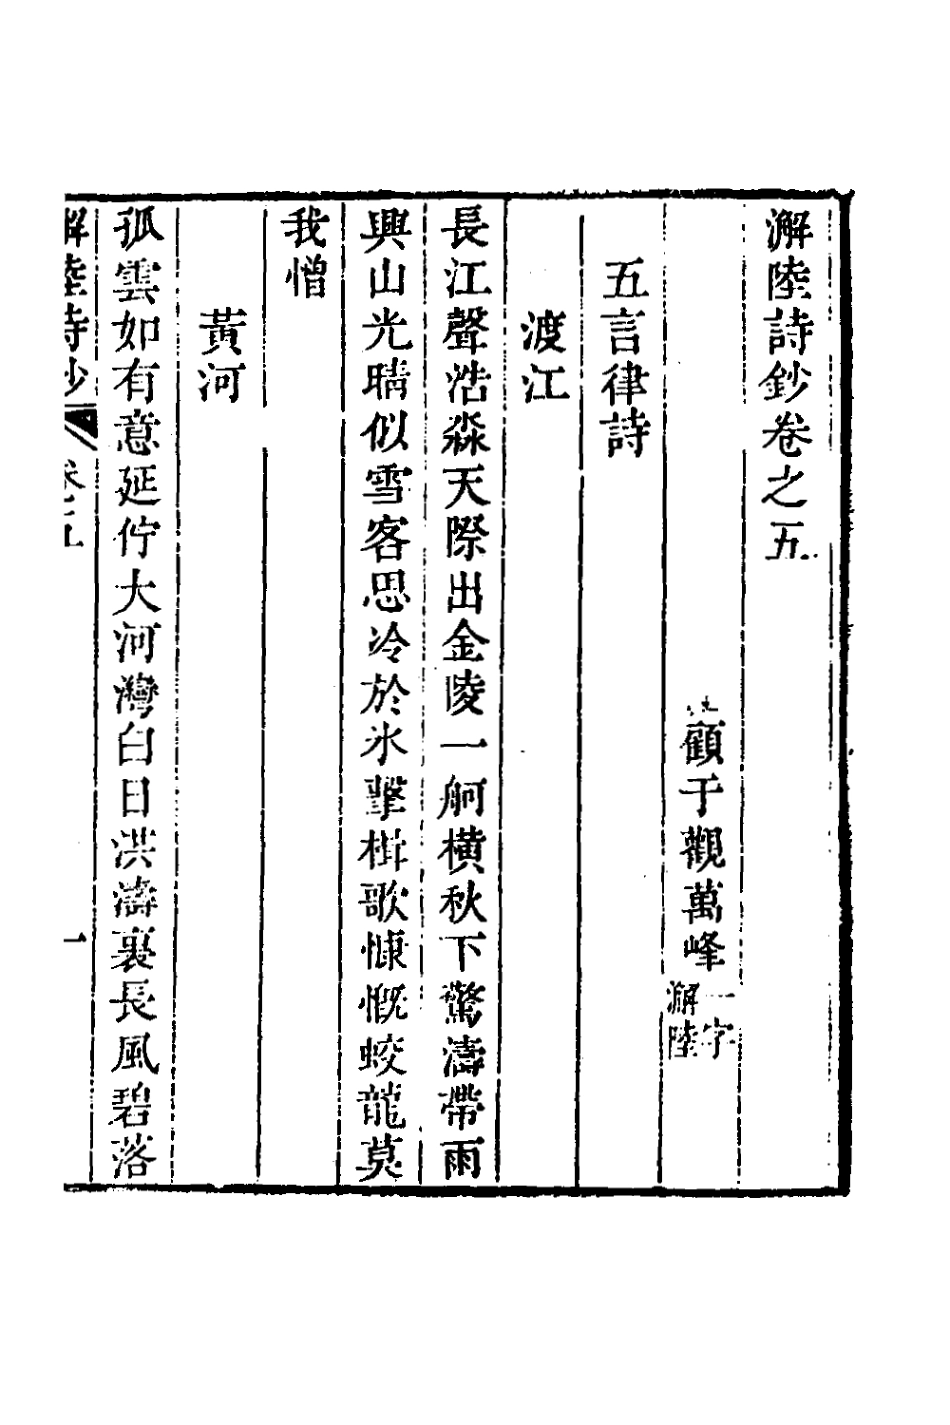 澥陸詩鈔卷之五
顧于觀萬峰一字澥陸
五言律詩
渡江
長江聲浩淼天際出金陵一舸橫秋下驚濤帶雨
興山光晴似雪客思冷於氷擊楫歌慷慨蛟龍莫
我憎
黃河
孤雲如有意延佇大河灣白日洪濤裏長風碧落
澥陸詩鈔 卷之五 一